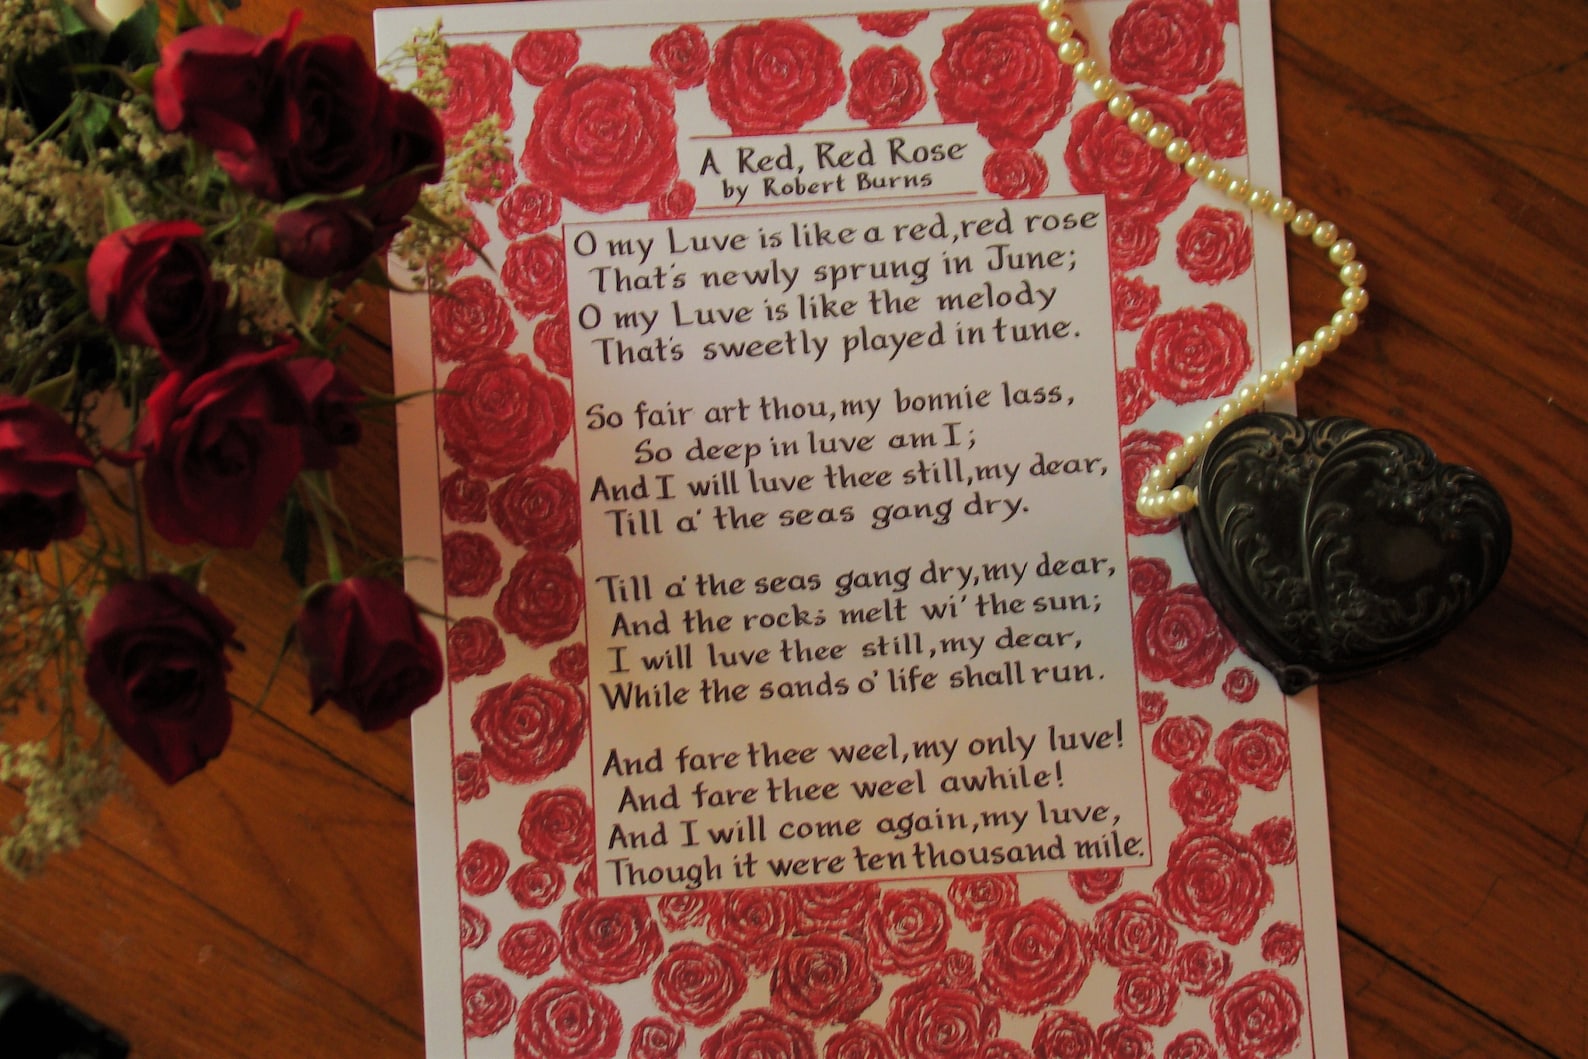 A Red, Red Rose
by Robert Burns
O my Luve is like a red, red rose
That's newly sprung in June;
O my Luve is like the melody
That's sweetly played in tune.
So fair art thou, my bonnie lass,
So deep in luve am I;
And I will luve thee still, my dear,
Till a' the seas gang dry.
Till a' the seas gang dry, my dear,
And the rocks melt wi' the sun;
I will luve thee still, my dear,
While the sands o' life shall run.
And fare thee weel, my only luve!
And fare thee weel awhile!
And I will come again, my luve,
Though it were ten thousand mile.